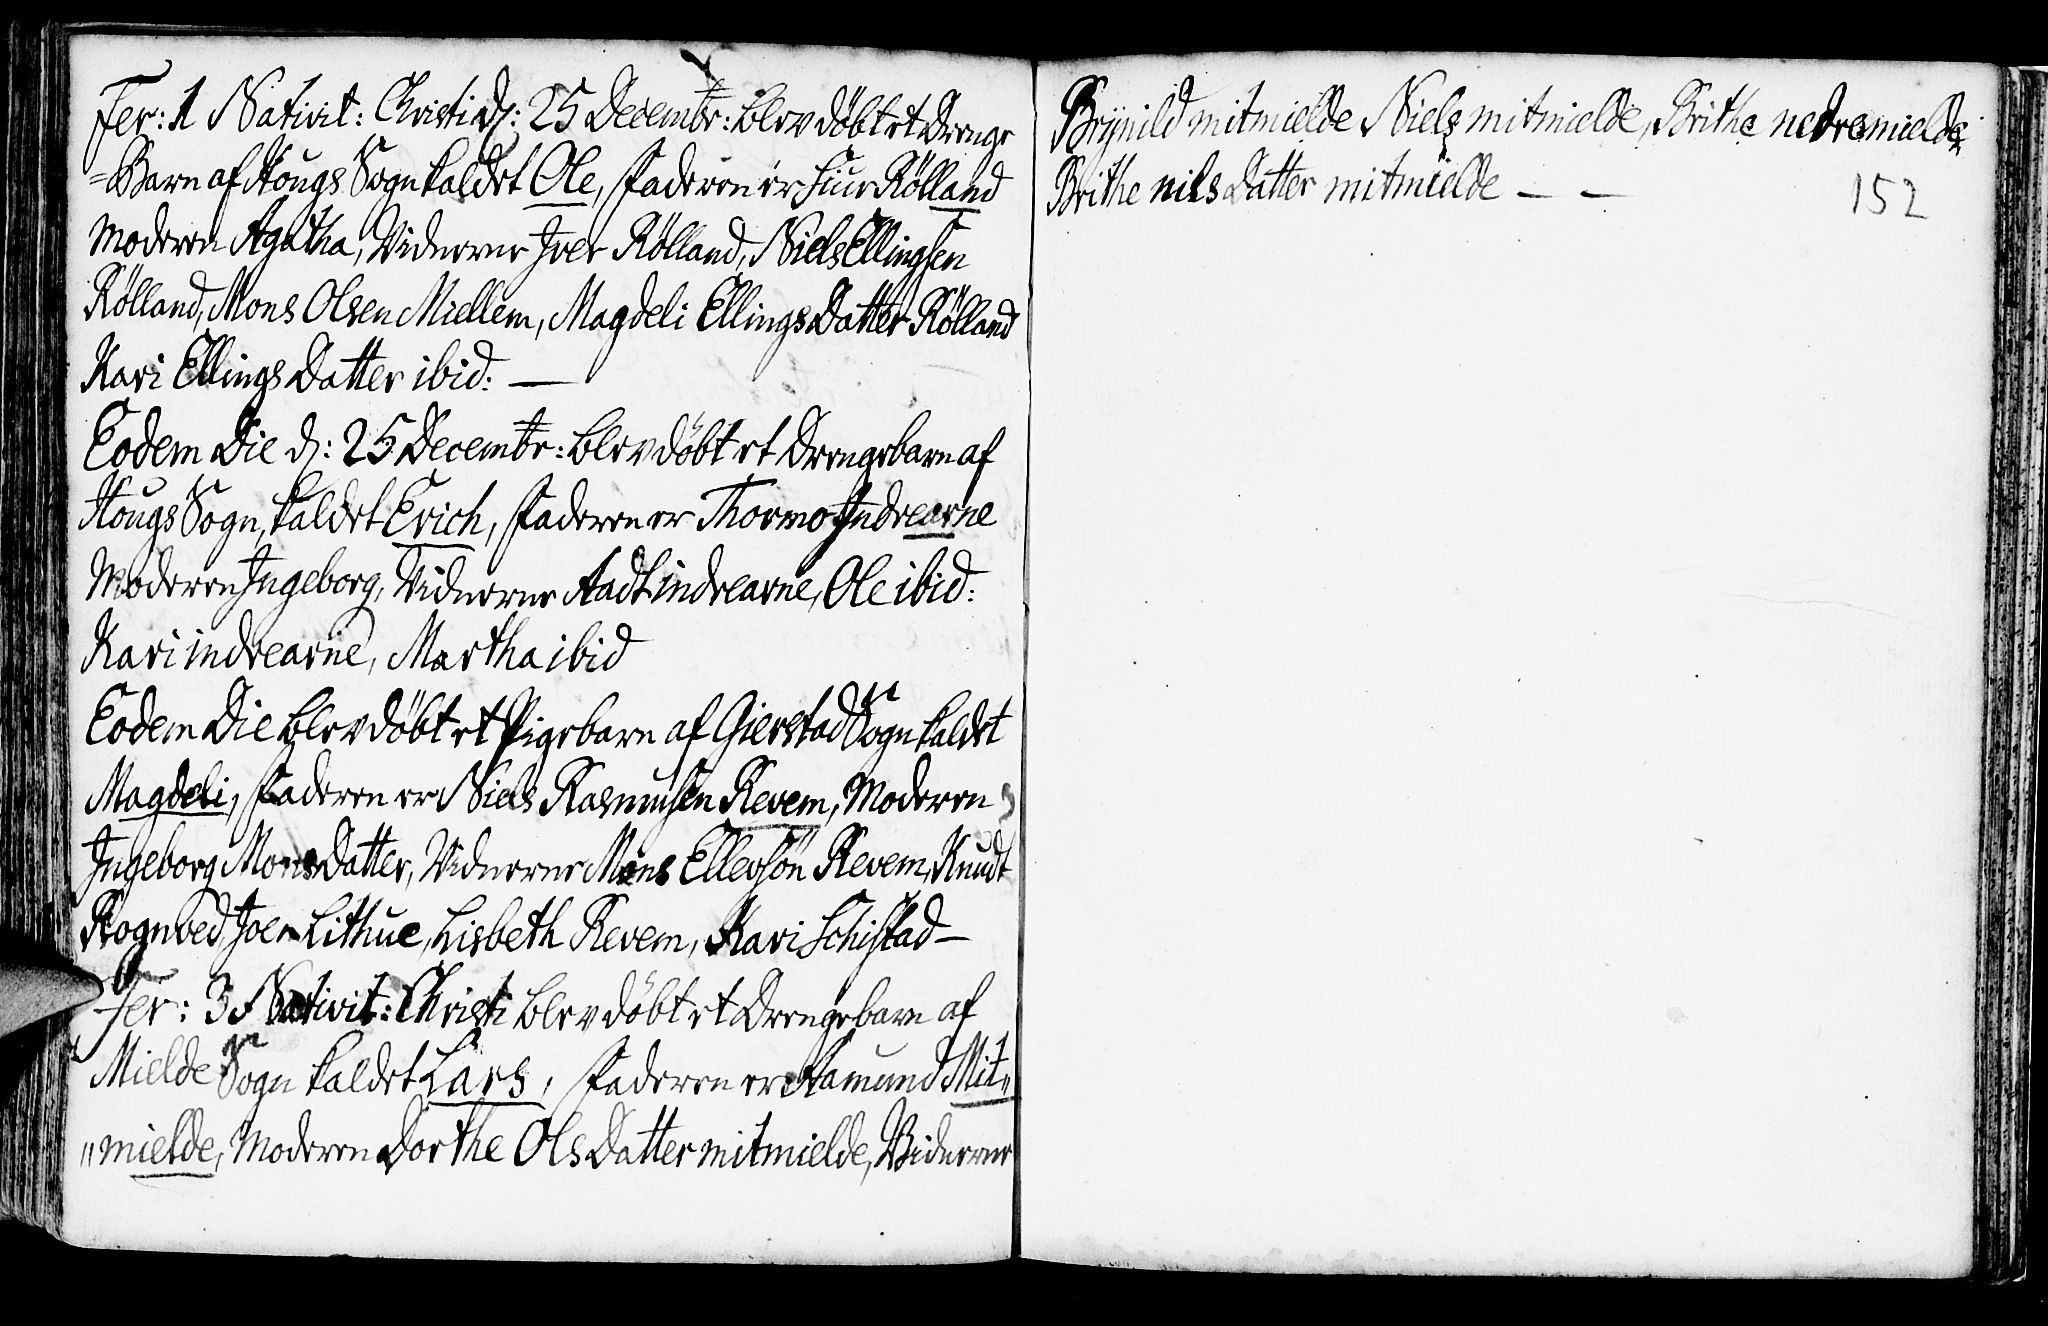 Fer: 1 Nativit: Christi d: 25 Decembr: blev döbt et Drenge
=Barn af Hougs Sogn kaldet Ole, Faderen er Siur Rölland
Moderen Agatha, Vidnerne Joer Rölland, Niels Ellingsen
Rölland, Mons Olsen Miellem, Magdeli Ellings Datter Rölland
Kari Ellings Datter ibid: —
Eodem Die d: 25 Decembr: blev döbt et Drengebarn af
Hougs Sogn, kaldet Erich, Faderen er Thormo Indrearne
Moderen Ingeborg, Vidnerne Aadt indrearne, Ole ibid:
Kari indrearne, Martha ibid
Eodem Die blev döbt et Pigebarn af Gierstad Sogn kaldet
Magdeli, Faderen er Niels Rasmusen Revem, Moderen
Ingeborg Mons Datter, Vidnerne Mons Ellevsön Revem, Knudt
Rognved, Joen Lithue, Lisbeth Revem, Kari Schistad —
Fer: 3 Nativit: Christi blev döbt et Drengebarn af
Mielde Sogn kaldet Lars, Faderen er Aamund Mit„
„mielde, Moderen Dorthe Ols Datter mitmielde, Vidnerne
Brÿnild mitmielde Niels mitmielde, Brithe nedremielde
Brithe nils Datter mitmielde — —
152